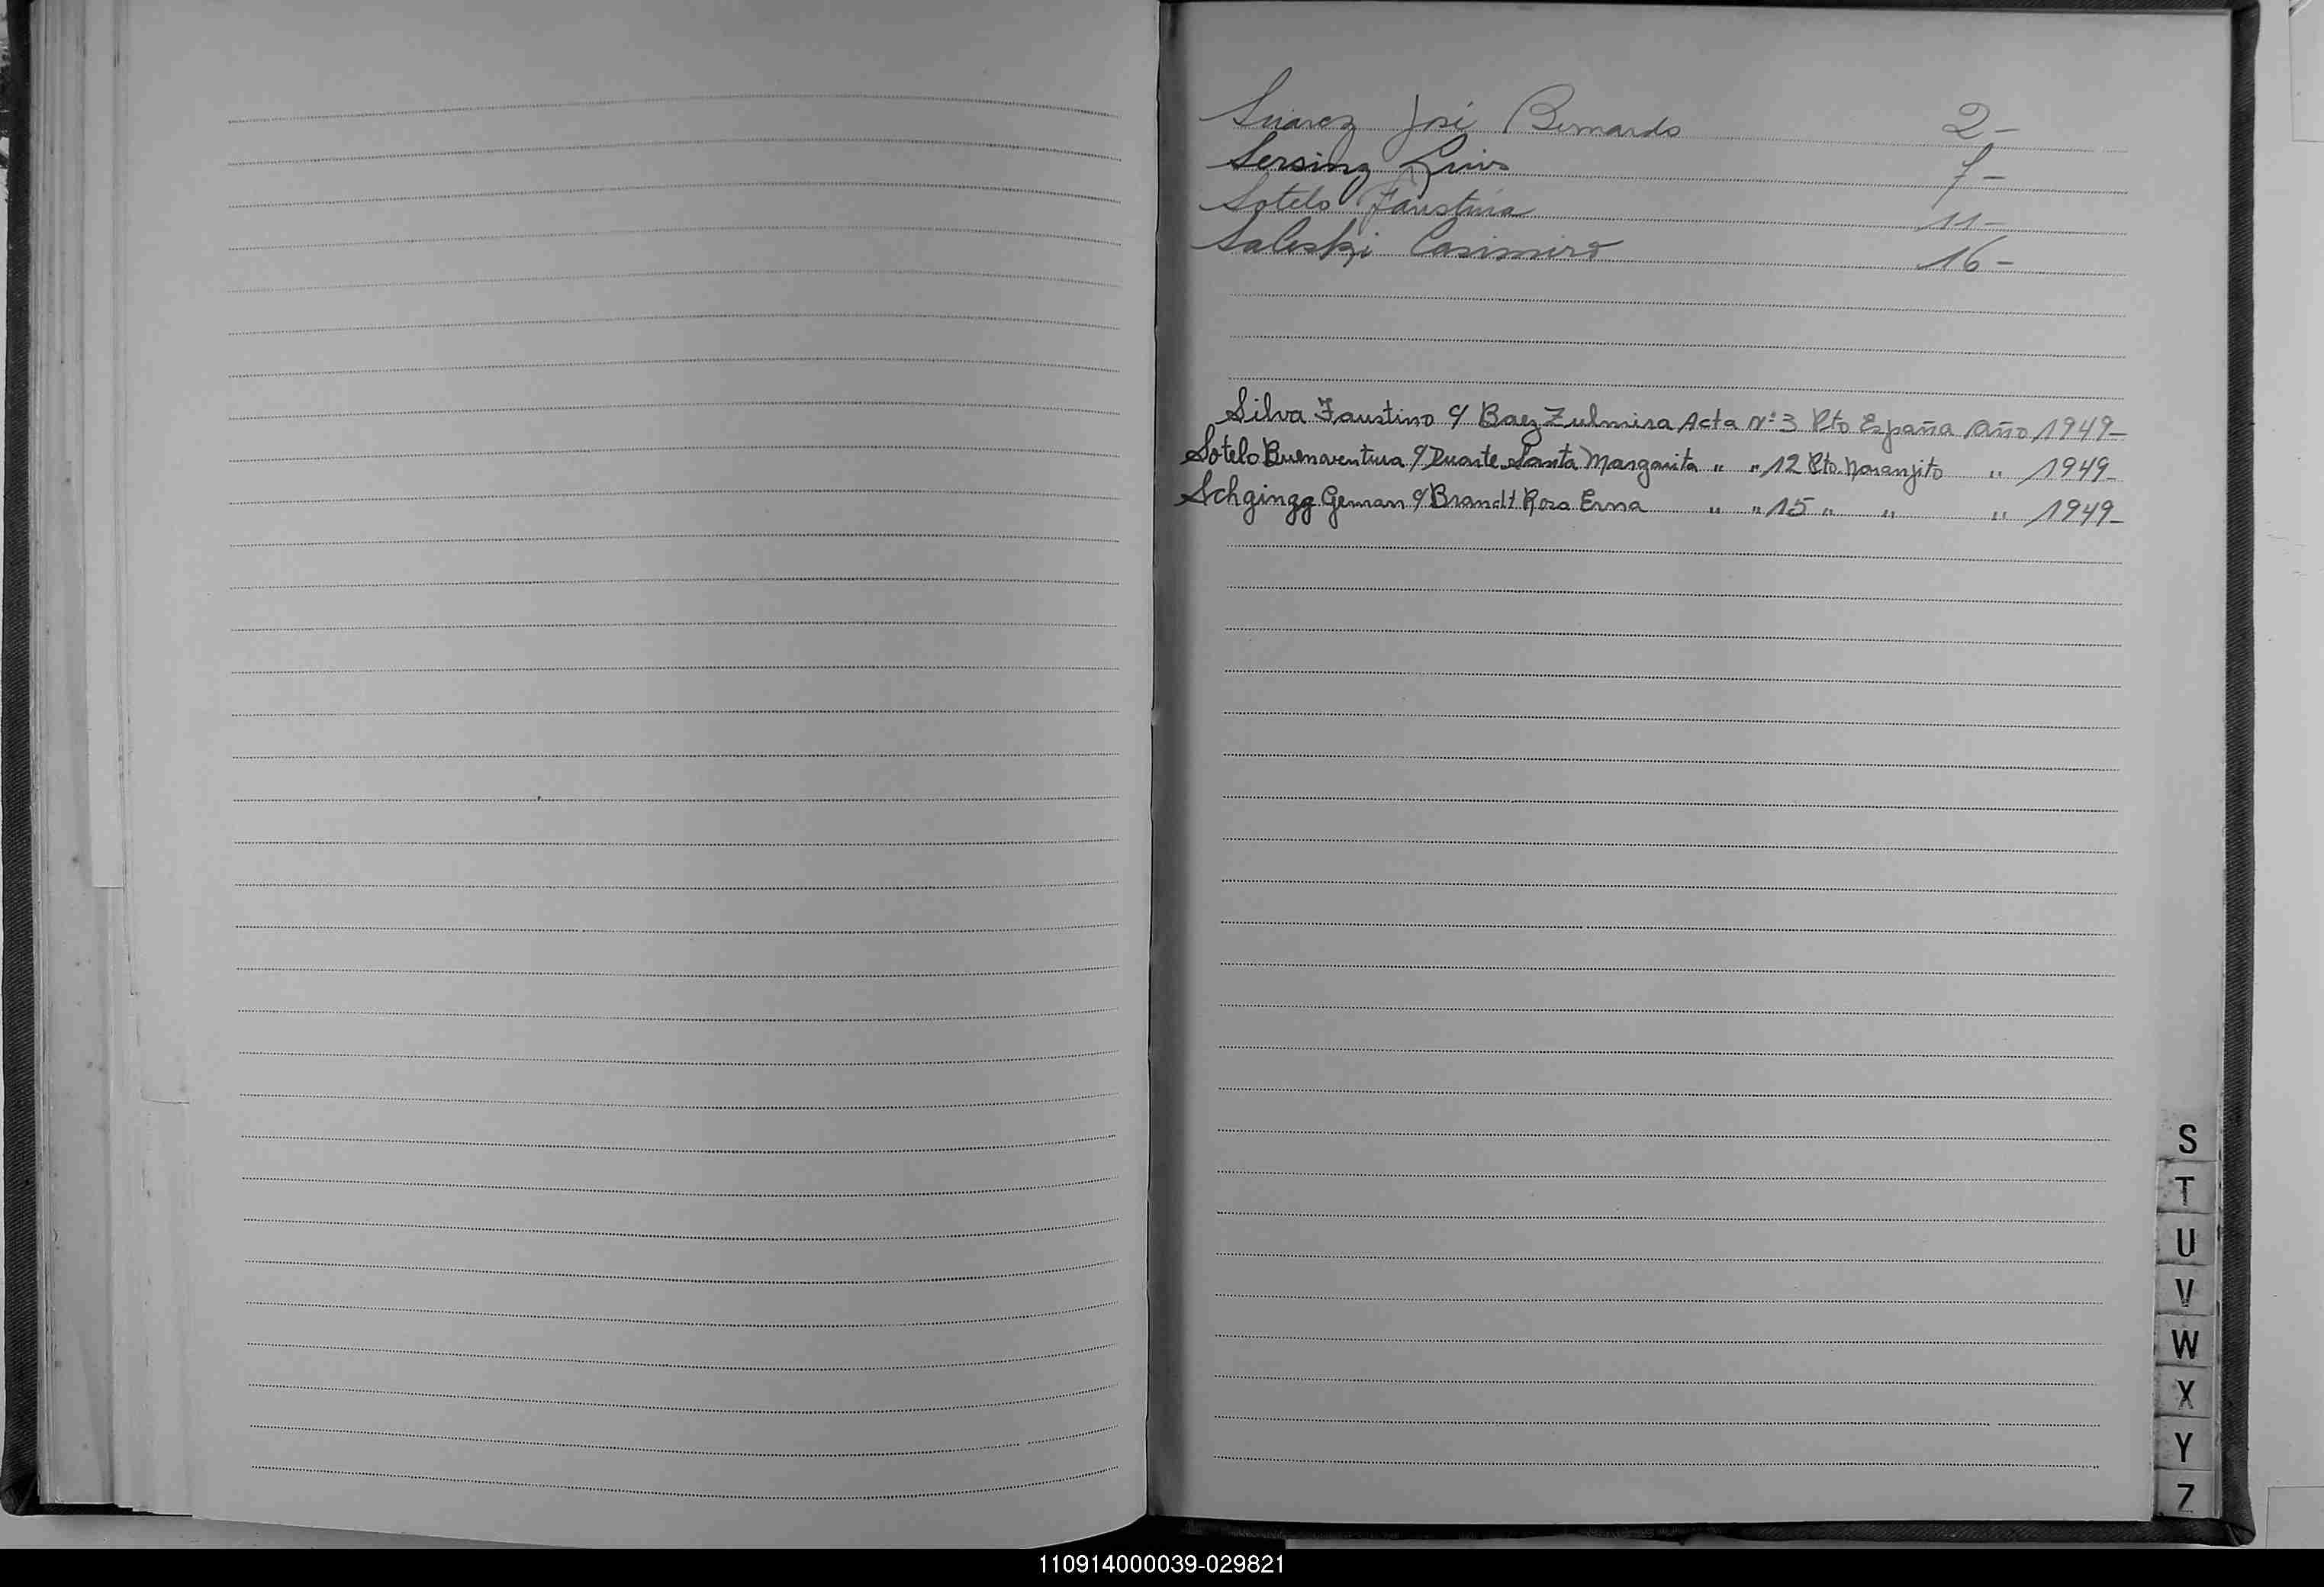 Suarez José Bernardo 2-
Sersing Luis 7-
Sotelo Faustina 11-
Saleski Casimiro 16-
Silva Faustino c/ Baez Zulmira Acta Nº 3 Pto España Año 1949-
Sotelo Buenaventura c/ Duarte Santa Margarita " " 12 Pto. Naranjito " 1949-
Schgingg German c/ Brandt Rosa Erna " " 15 " " " 1949-
S
T
U
V
W
X
Y
Z
110914000039-029821